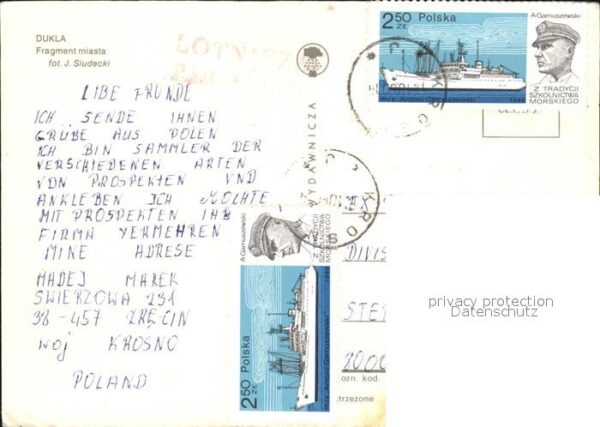 DUKLA
Fragment miasta
fot. J. Siudecki
LOTNICZ
LIBE FRUNDE
ICH SENDE IHNEN
GRUBE AUS POLEN
ICH BIN SAMMLER DER
VERSCHIEDENEN ARTEN
VON PROSPEKTEN VND
ANKLEBEN ICH MOCHTE
MIT PROSPEKTEN IHR
FIRMA VERMEHREN
MINE ADRESE
MADEJ MAREK
SWIERZOWA 231
38-457 ZRĘCIN
WOJ KROSNO
POLAND
WYDAWNICZA
2,50 Polska
zł
A. Garnuszewski
Z TRADYCJI
SZKOLNICTWA
MORSKIEGO
m/s „Antoni Garnuszewski” 1980
KRO
2,50 Polska
zł
A. Garnuszewski
Z TRADYCJI
SZKOLNICTWA
MORSKIEGO
m/s „Antoni Garnuszewski” 1980
KROS
DIVIS
STE
2000
ozn. kod.
trzeżone
privacy protection
Datenschutz